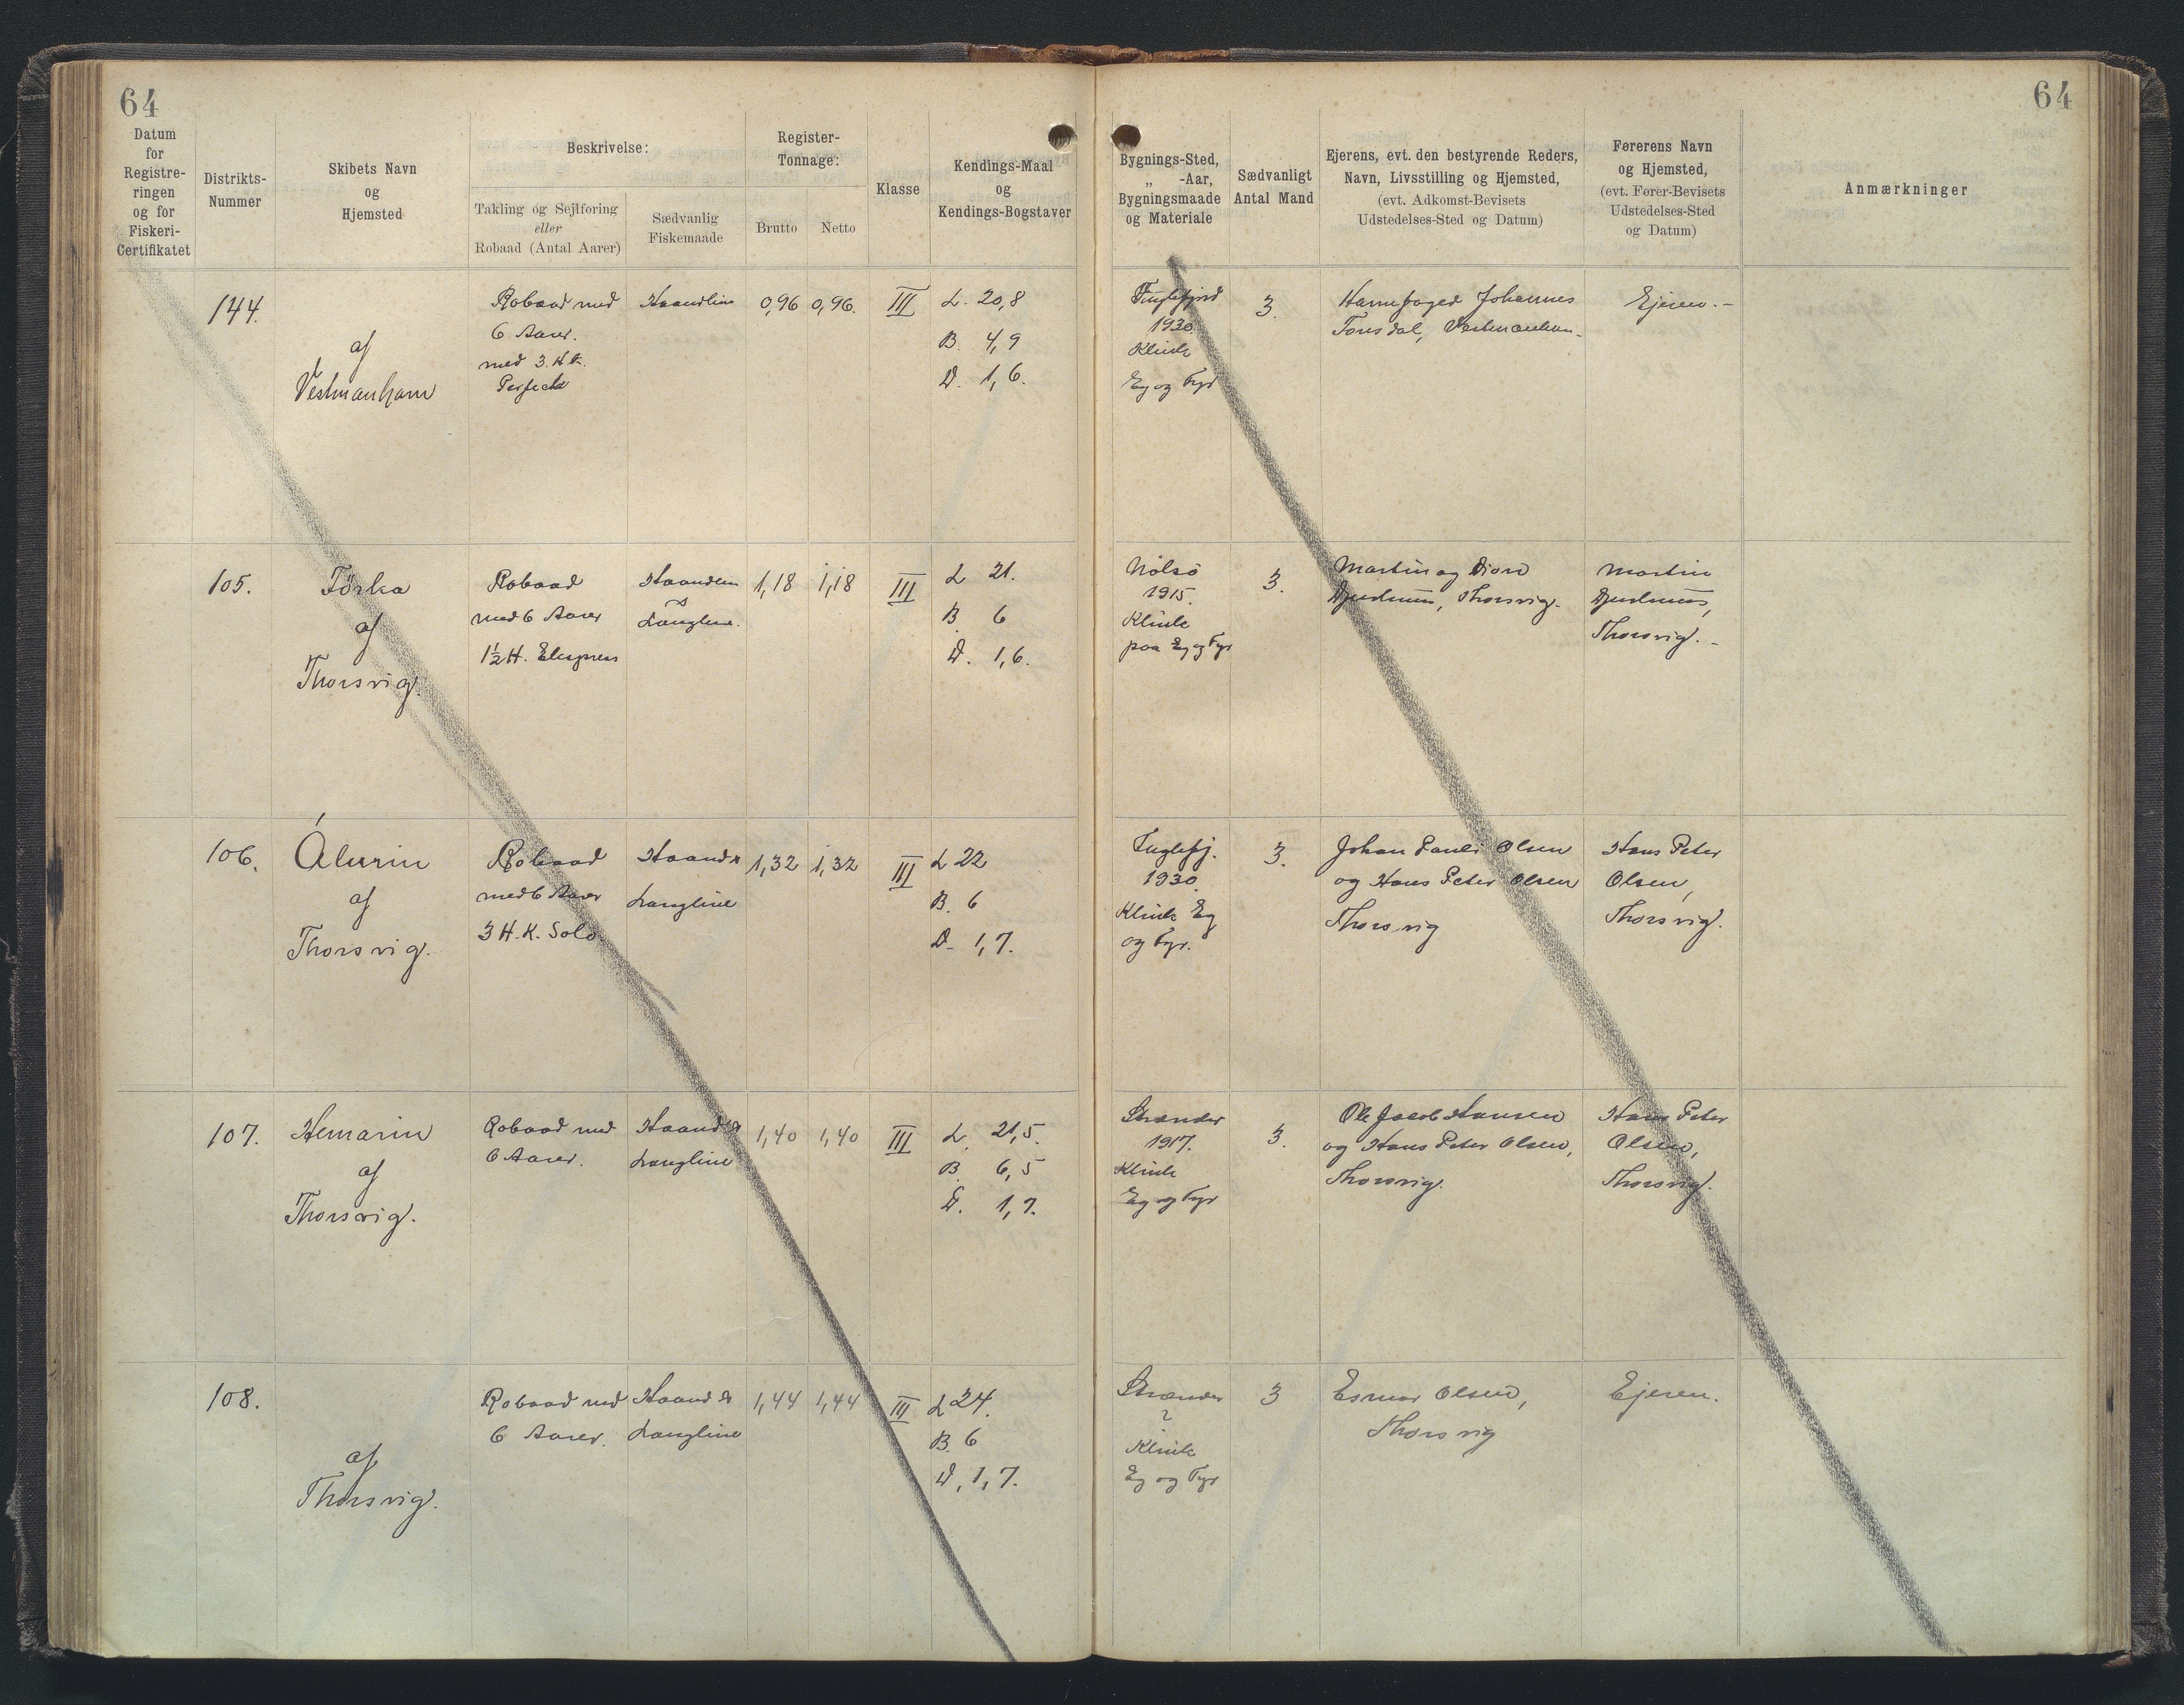 64
64
Datum
for
Registre-
ringen
og for
Fiskeri-
Certifikatet
Distrikts-
Nummer
Skibets Navn
og
Hjemsted
Beskrivelse:
Takling og Sejlføring
eller
Robaad (Antal Aarer)
Sædvanlig
Fiskemaade
Register-
Tonnage:
Brutto
Netto
Klasse
Kendings-Maal
og
Kendings-Bogstaver
Bygnings-Sted,
„ -Aar,
Bygningsmaade
og Materiale
Sædvanligt
Antal Mand
Ejerens, evt. den bestyrende Reders,
Navn, Livsstilling og Hjemsted,
(evt. Adkomst-Bevisets
Udstedelses-Sted og Datum)
Førerens Navn
og Hjemsted,
(evt. Fører-Bevisets
Udstedelses-Sted
og Datum)
Anmærkninger
144.
af
Vestmanhavn
Robaad med
6 Aarer.
med 3. H.K.
Haandline
0,96
0,96.
III
L. 20,8
B. 4,9
D. 1,6.
Fuglefjord
1930.
Klink
Eg og Fyr
3.
Havnefoged Johannes
Vestmanhavn.
Ejeren.-
105.
af
Thorsvig.
Robaad
med 6 Aarer
1½ H.
Langline.
1,18
1,18
III
L 21.
B. 6
D. 1,6.
Nolsø
1915.
Klink
paa Eg og Fyr
3.
Martin og
Thorsvig.
Martin
Thorsvig.-
106.
af
Thorsvig.
Robaad
med 6 Aarer
3 H.K. Solo
Haand &
Langline
1,32
1,32
III
L 22
B. 6
D. 1,7.
Fuglefj.
1930.
Klink Eg
og Fyr.
3.
Johan Pauli Olsen
og Hans Peter Olsen
Thorsvig
Hans Peter
Olsen,
Thorsvig.
107.
Hemarin
af
Thorsvig.
Robaad med
6 Aarer.
Haand &
Langline
1,40
1,40
III
L. 21,5.
B. 6,5
D. 1,7.
Strænder
1917.
Klink
Eg og Fyr
3.
Ole Jacob Hansen
og Hans Peter Olsen,
Thorsvig.
Hans Peter
Olsen,
Thorsvig.
108.
af
Thorsvig.
Robaad med
6 Aarer.
Haand &
Langline
1,44
1,44
III
L 24.
B. 6
D. 1,7.
Strænder
?
Klink
Eg og Fyr
3
Olsen,
Thorsvig
Ejeren.